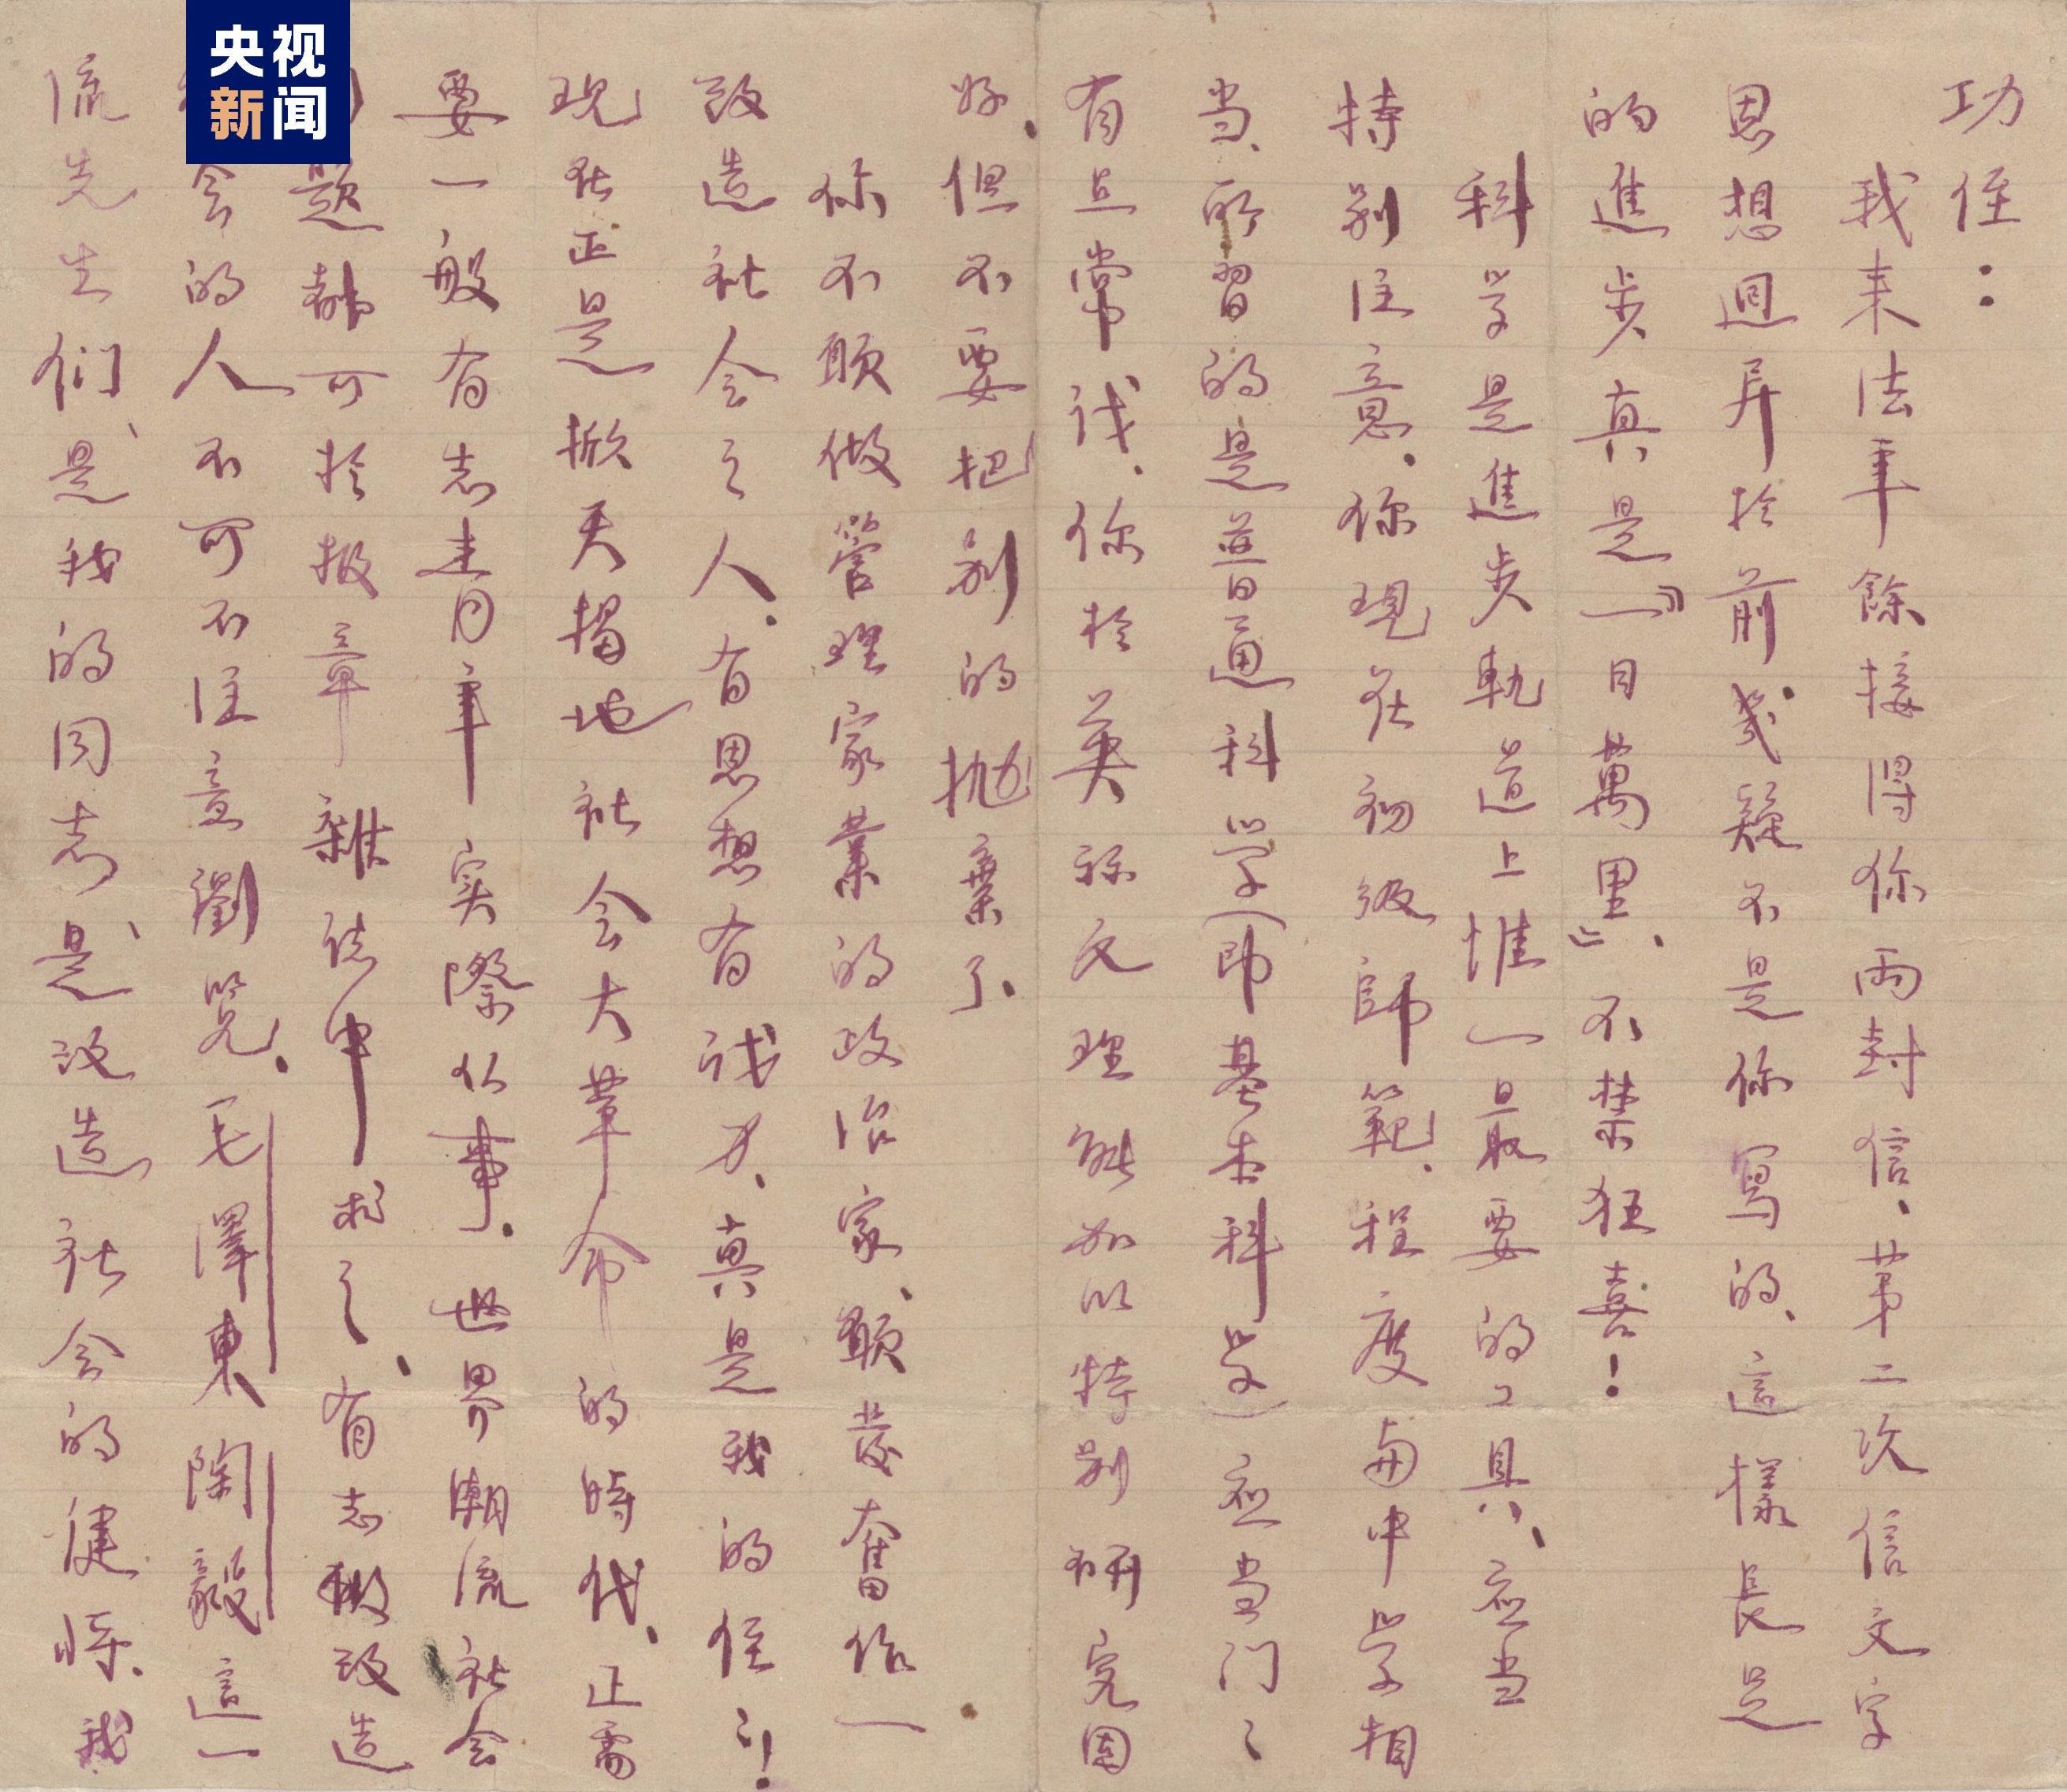 央视
新闻
功侄：
我来法年餘接得你兩封信、第二次信文字
思想迥异於前幾疑不是你寫的、這樣長足
的進步真是『一日萬里』、不禁狂喜！
科学是進步軌道上惟一最要的工具、应当
特别注意．你現在初级師範、程度与中学相
当、所習的是普通科学（即基本科学）应当门々
有点常识．你於英...文理能加以特别研究固
好．但不要把别的抛棄了．
你不願做管理家業的政治家、願發奮作一
改造社会之人．有思想有识力、真是我的侄々！
現在正是掀天揭地社会大革命的時代、正需
要一般有志青年实際從事．世界潮流社会
题都可於报章雜誌中求之、有志做改造
会的人不可不注意瀏覽．毛澤東陶毅這一
流先生们、是我的同志、是改造社会的健将、我